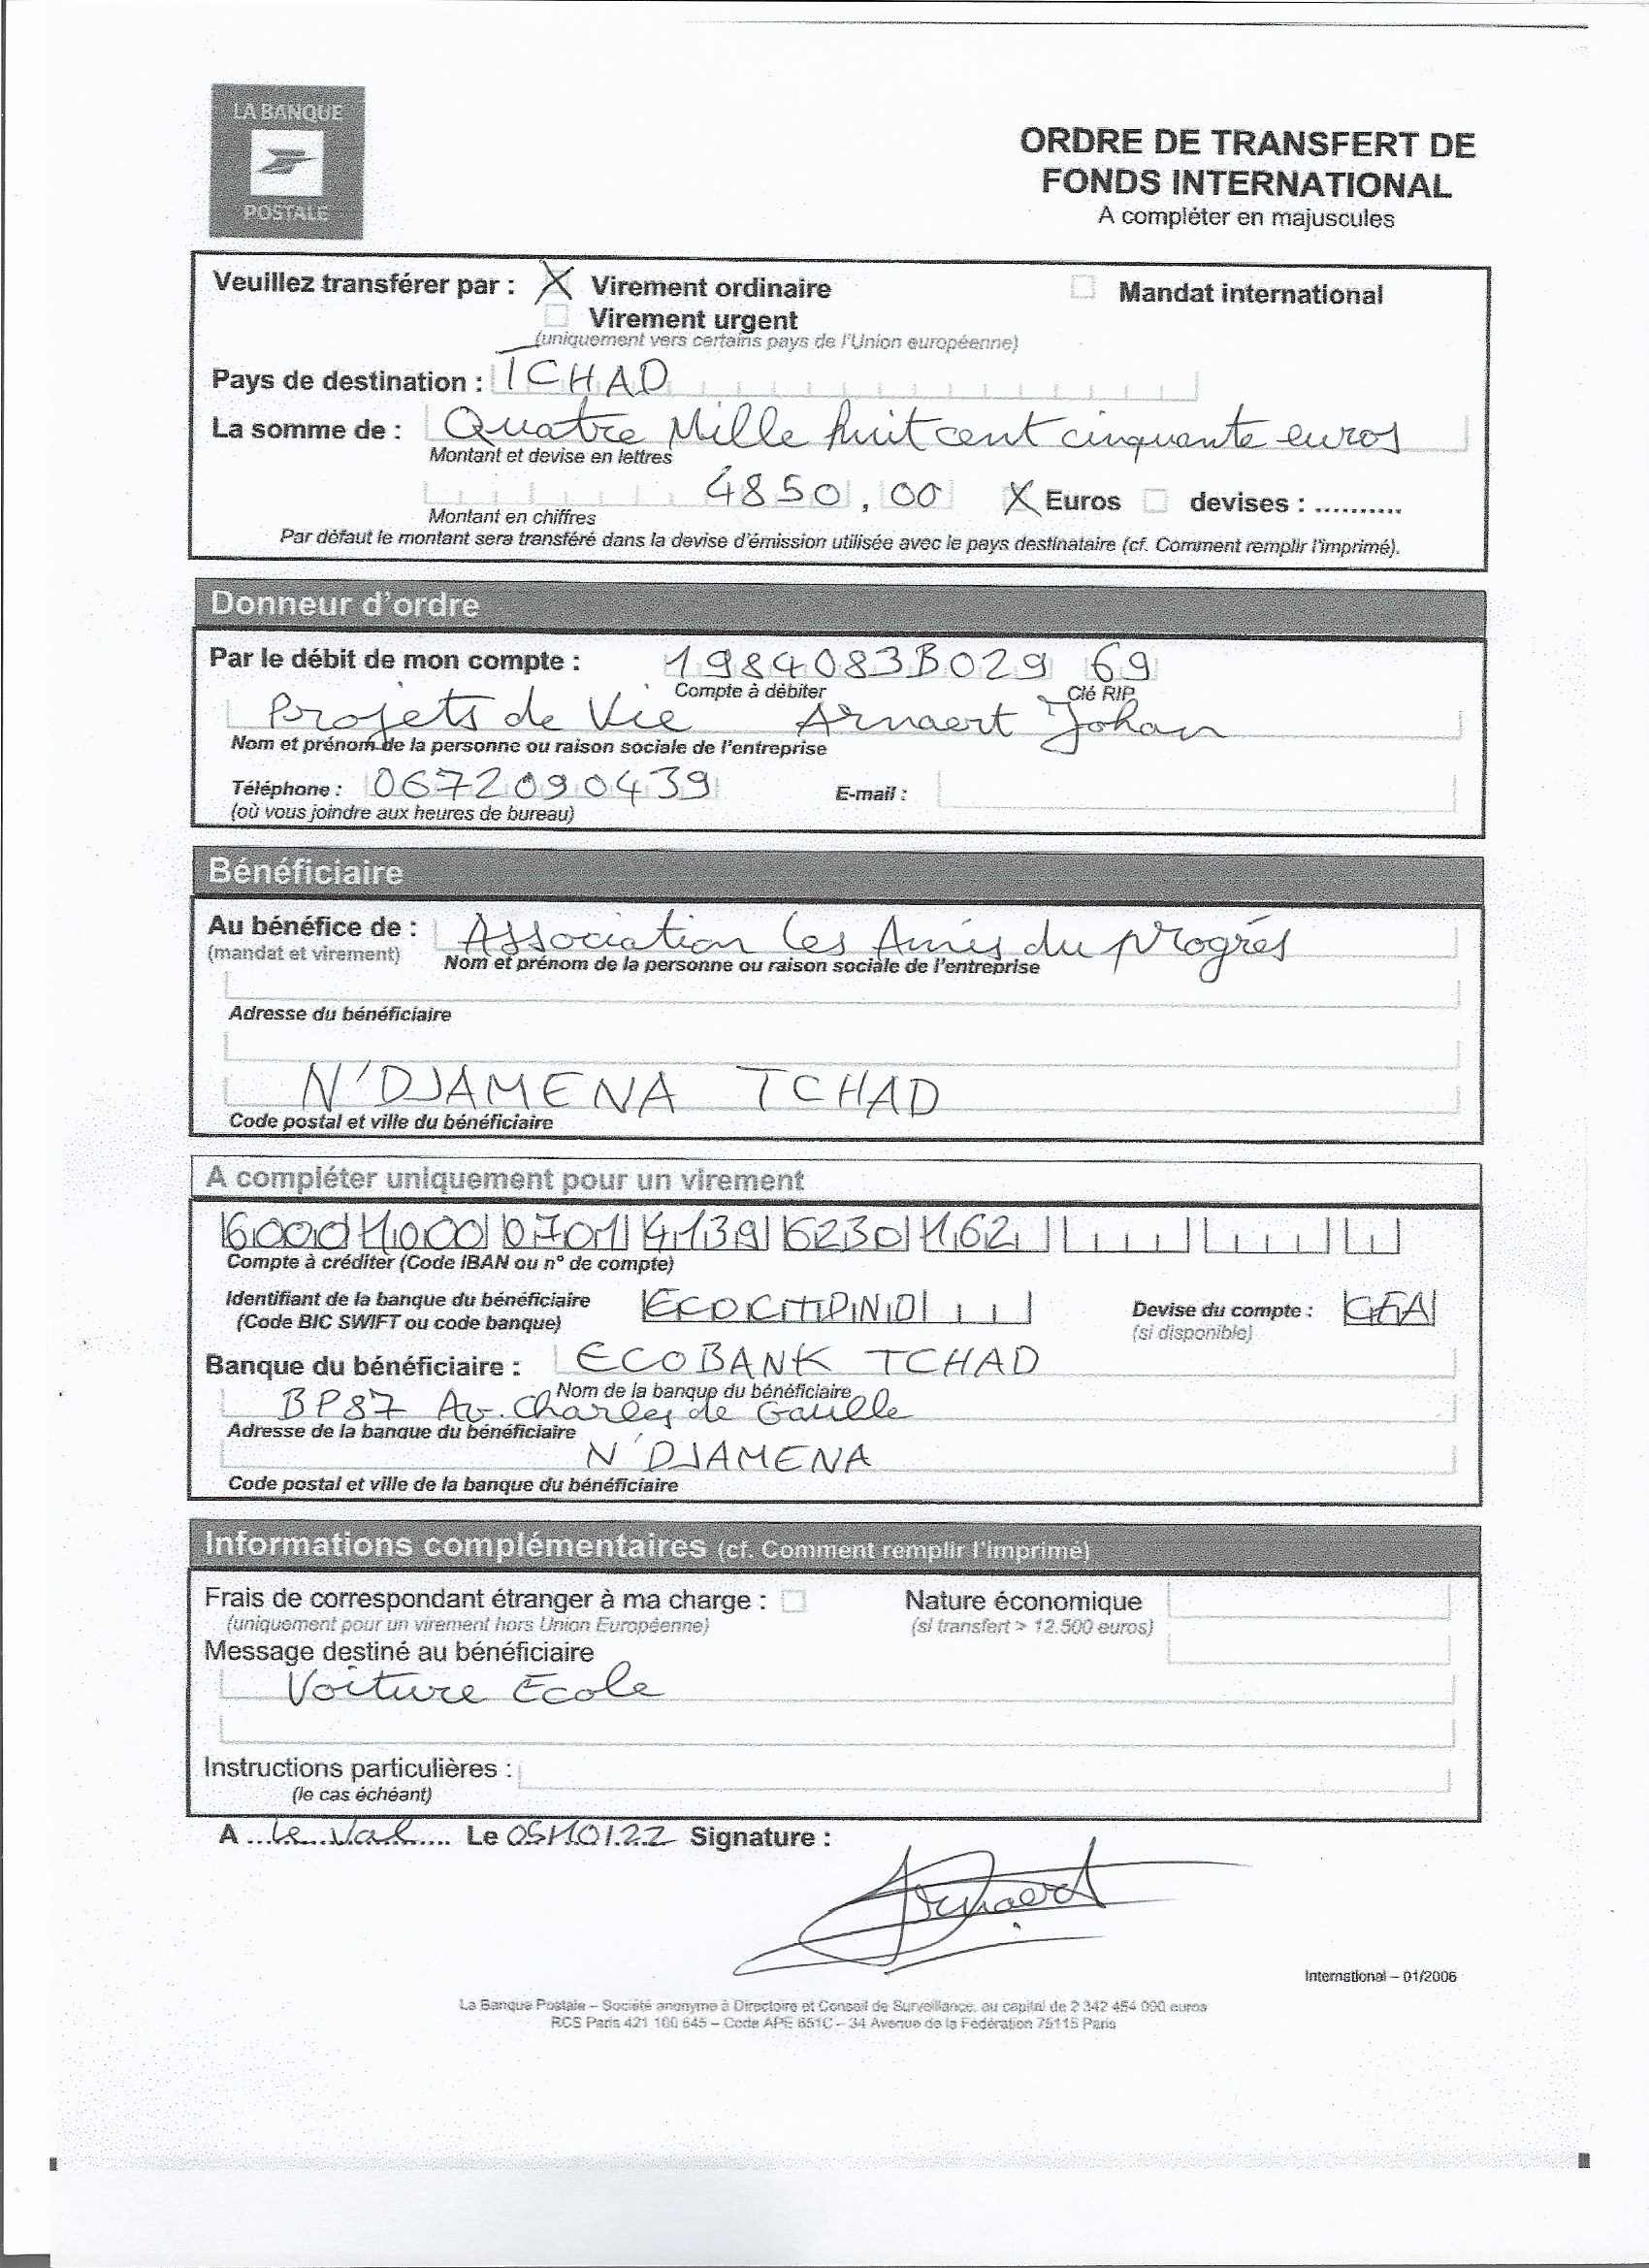 LA BANQUE
POSTALE
ORDRE DE TRANSFERT DE
FONDS INTERNATIONAL
A compléter en majuscules
Veuillez transférer par : X Virement ordinaire Mandat international
Virement urgent
(uniquement vers certains pays de l'Union européenne)
Pays de destination : TCHAD
La somme de : Quatre Mille huit cent cinquante euros
Montant et devise en lettres
4850,00 X Euros devises : ..........
Montant en chiffres
Par défaut le montant sera transféré dans la devise d'émission utilisée avec le pays destinataire (cf. Comment remplir l'imprimé).
Donneur d'ordre
Par le débit de mon compte : 1984083B029 69
Compte à débiter Clé RIP
Projets de Vie Arnaert Johan
Nom et prénom de la personne ou raison sociale de l'entreprise
Téléphone : 0672090439 E-mail :
(où vous joindre aux heures de bureau)
Bénéficiaire
Au bénéfice de : Association les Amis du progrés
(mandat et virement) Nom et prénom de la personne ou raison sociale de l'entreprise
Adresse du bénéficiaire
N'DJAMENA TCHAD
Code postal et ville du bénéficiaire
A compléter uniquement pour un virement
6000 1000 0701 4139 6230 162
Compte à créditer (Code IBAN ou n° de compte)
Identifiant de la banque du bénéficiaire Devise du compte : CFA
(Code BIC SWIFT ou code banque) (si disponible)
Banque du bénéficiaire : ECOBANK TCHAD
Nom de la banque du bénéficiaire
BP87 Av. Charles de Gaulle
Adresse de la banque du bénéficiaire
N'DJAMENA
Code postal et ville de la banque du bénéficiaire
Informations complémentaires (cf. Comment remplir l'imprimé)
Frais de correspondant étranger à ma charge : Nature économique
(uniquement pour un virement hors Union Européenne) (si transfert > 12.500 euros)
Message destiné au bénéficiaire
Voiture Ecole
Instructions particulières :
(le cas échéant)
A ...Le Val.... Le 05/10/22 Signature :
Arnaert
International – 01/2006
La Banque Postale – Société anonyme à Directoire et Conseil de Surveillance, au capital de 2 342 454 090 euros
RCS Paris 421 100 645 – Code APE 651C – 34 Avenue de la Fédération 75115 Paris